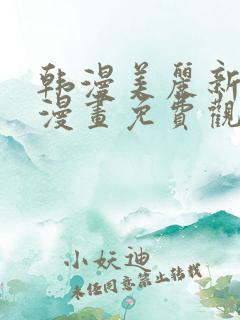 韩漫美麗新
漫畫免費觀
小妖迪
未經同意禁止轉載